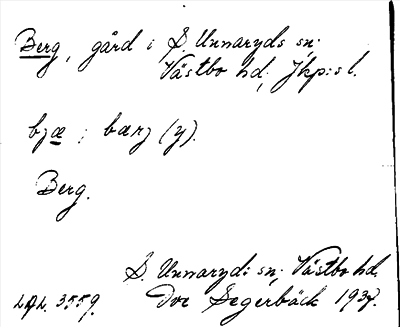 Berg, gård i S. Unnaryds sn.
Västbo hd, Jkp:s l.
bjæ ; bærj (y).
Berg.
S. Unnaryds sn. Västbo hd.
LAL. 3559. Segerbäck 193